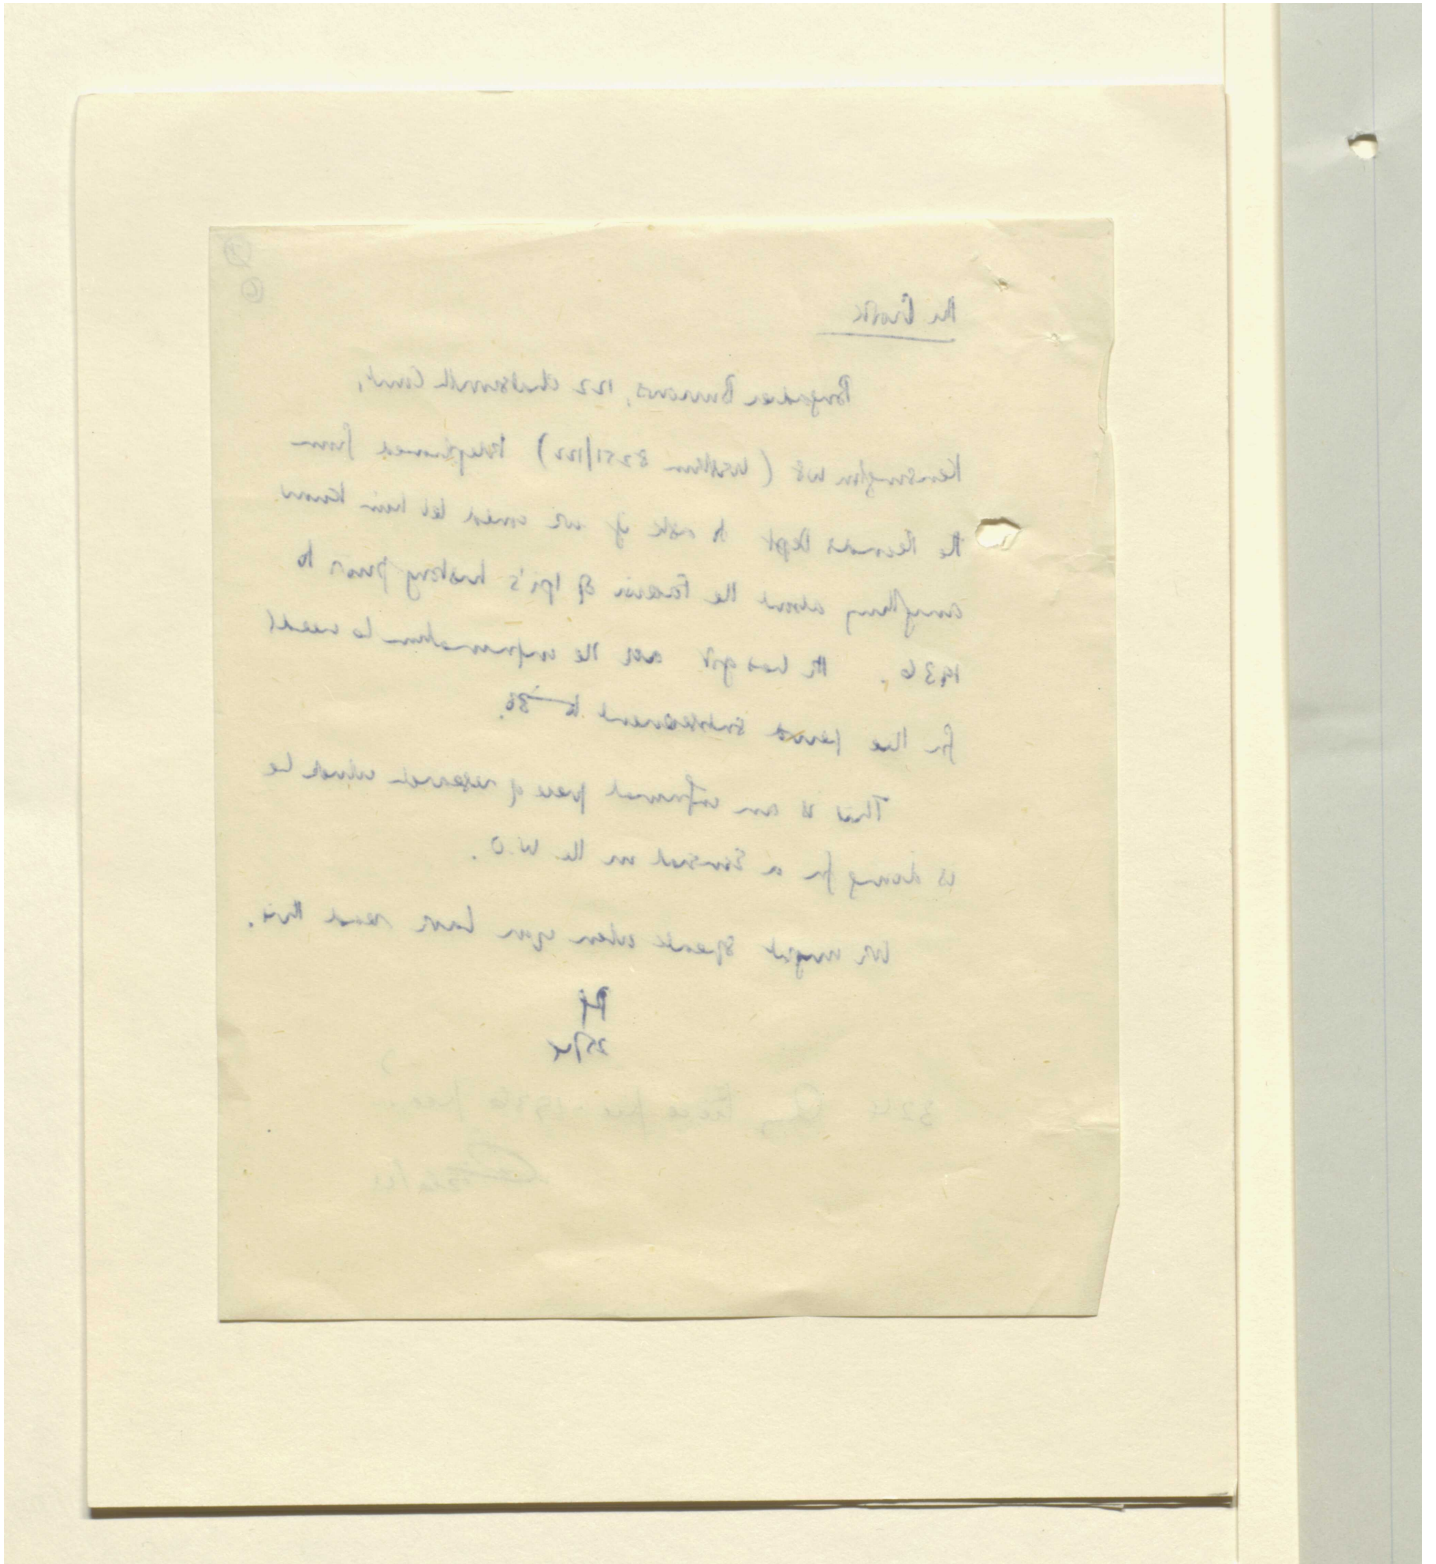 Mr Croth
Brigadier Burrows, 122 Chatsworth Court,
Kensington W8 (Western 8251/122) telephoned from
the Records Dept to ask if we could let him know
anything about the Faqir of Ipi's history prior to
1936. He has got all the information he needs
for the period subsequent to 36.
This is an informal piece of research which he
is doing for a in the W.O.
We might speak when you have read this.
25/4
324